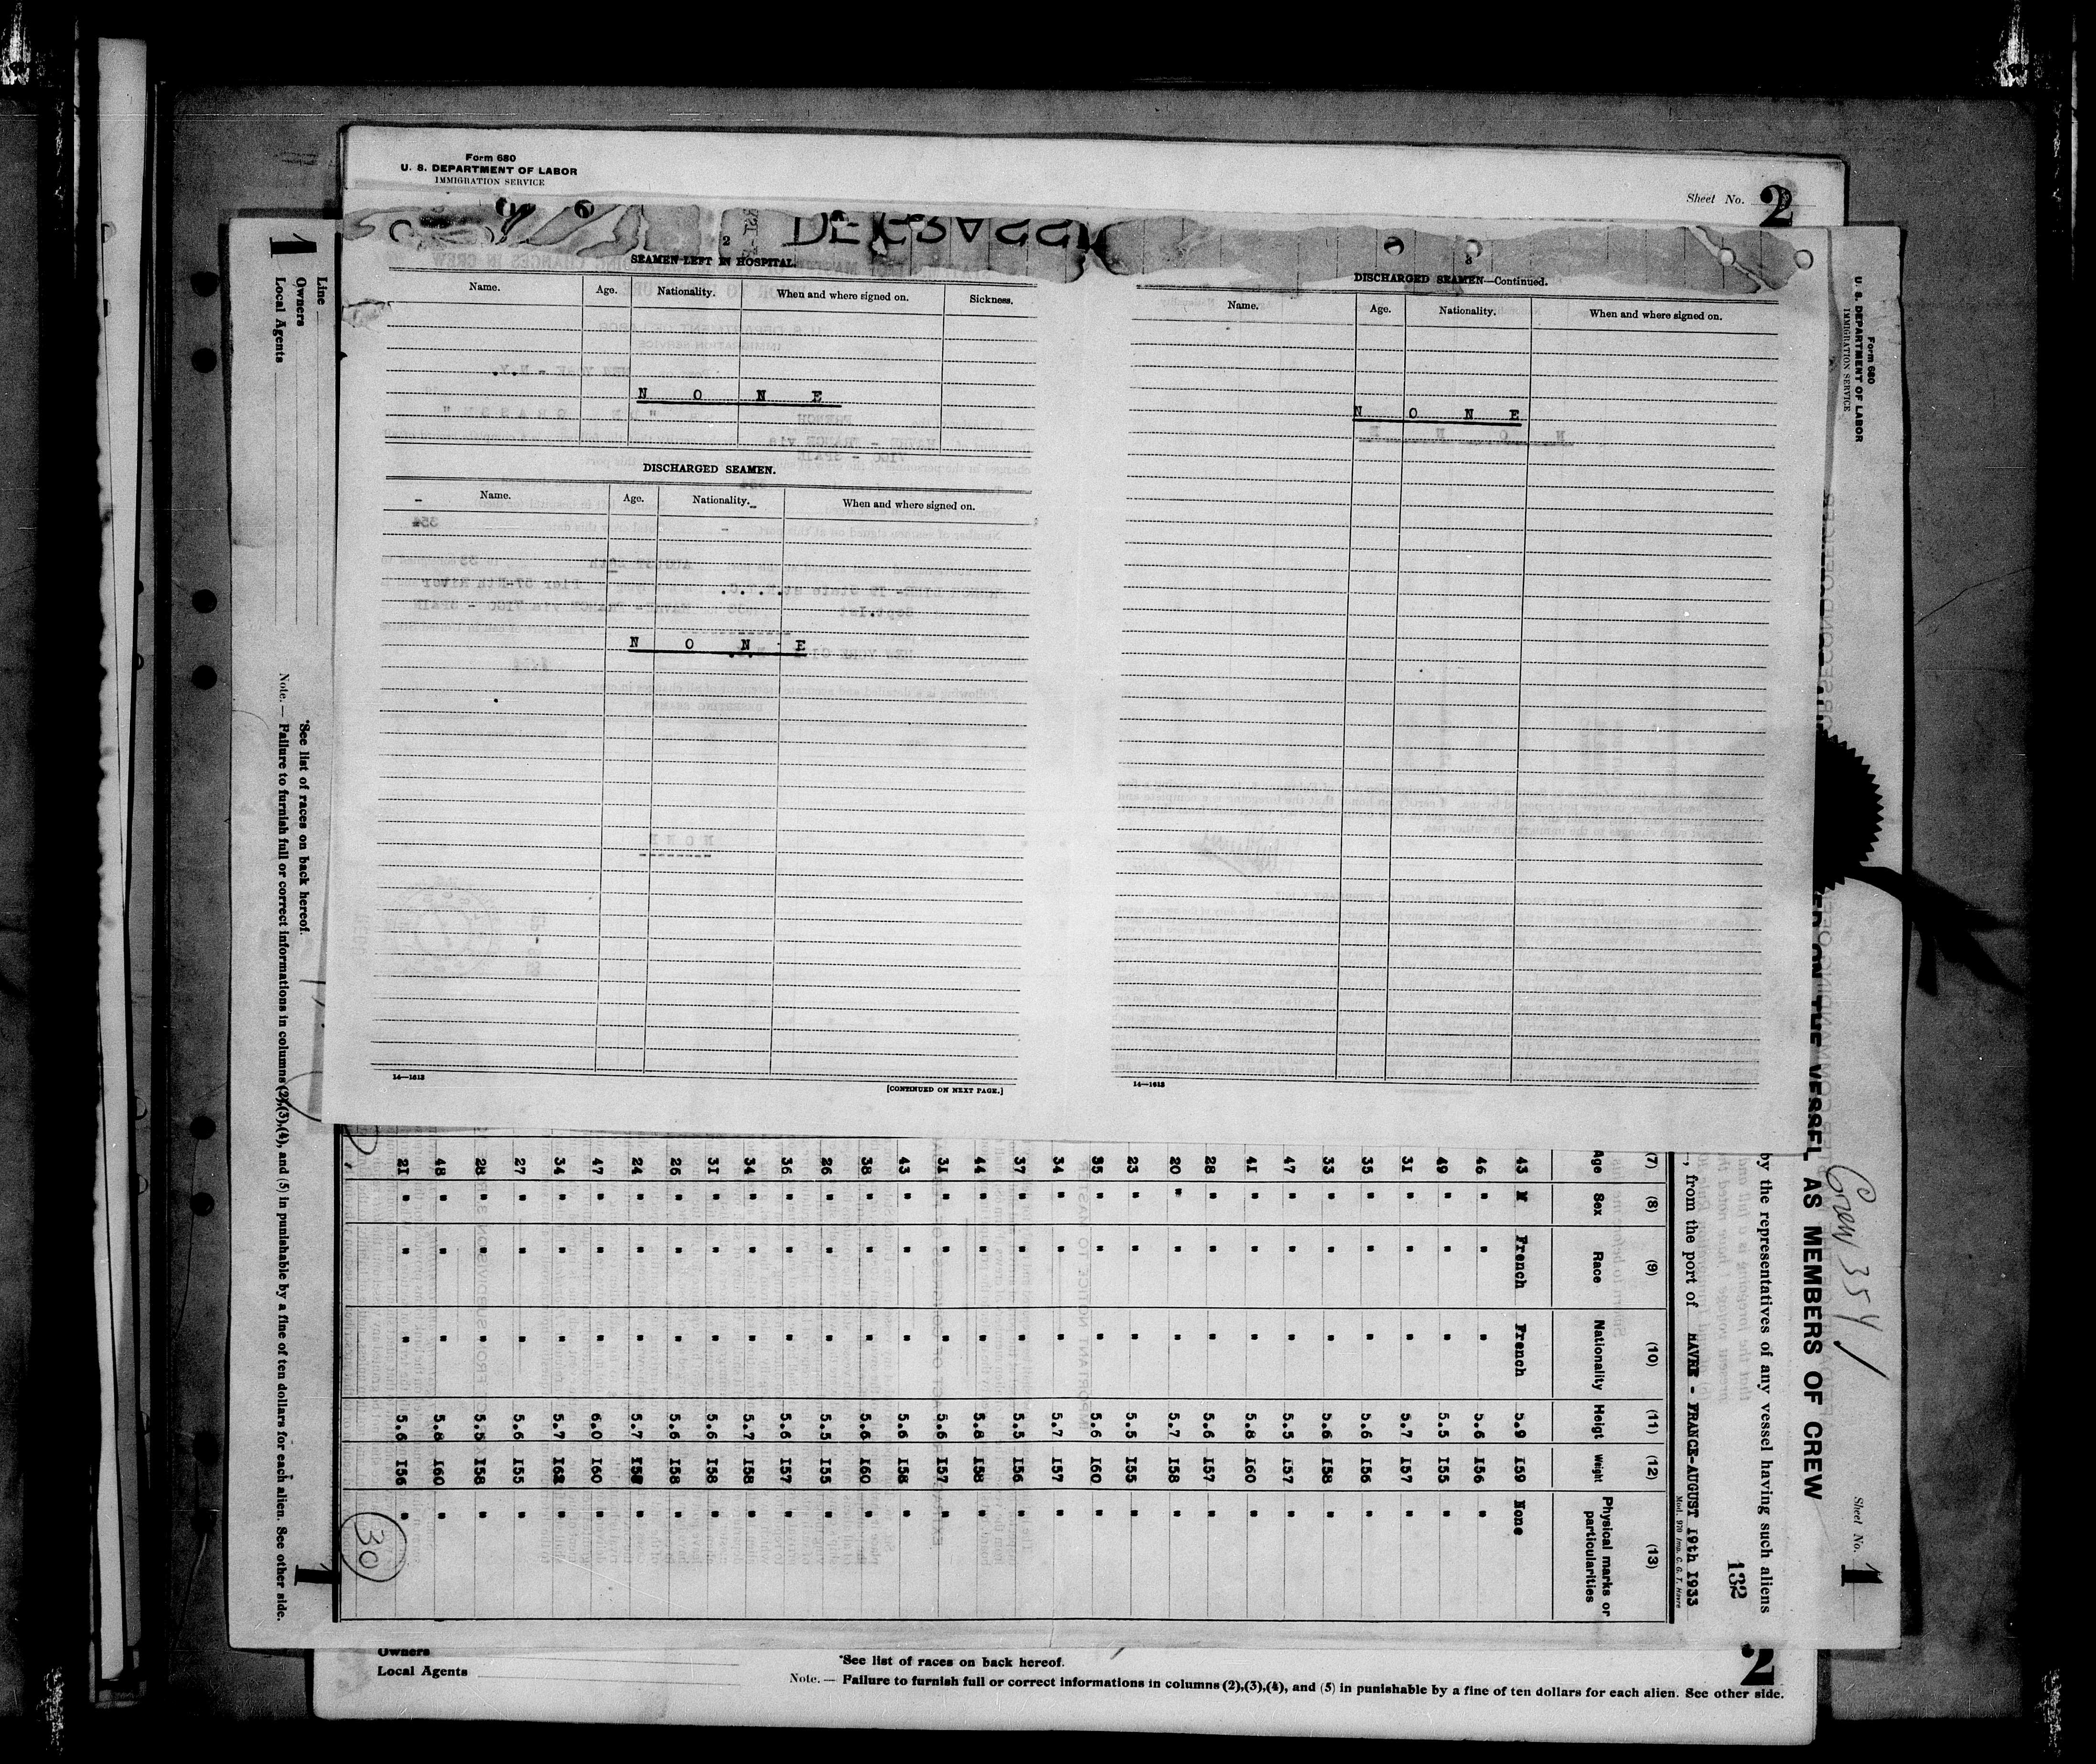 Form 680
U. S. DEPARTMENT OF LABOR
IMMIGRATION SERVICE
Sheet No. 2
2
SEAMEN LEFT IN HOSPITAL.
Name. Age. Nationality. When and where signed on. Sickness.
N O N E
DISCHARGED SEAMEN.
Name. Age. Nationality. When and where signed on.
N O N E
14—1613
[CONTINUED ON NEXT PAGE.]
3
DISCHARGED SEAMEN—Continued.
Name. Age. Nationality. When and where signed on.
N O N E
14—1613
1
Line
Owners
Local Agents
*See list of races on back hereof.
Note. — Failure to furnish full or correct informations in columns (2),(3),(4), and (5) in punishable by a fine of ten dollars for each alien. See other side.
1
Form 680
U. S. DEPARTMENT OF LABOR
IMMIGRATION SERVICE
Crew 354
Sheet No. 1
ON THE VESSEL AS MEMBERS OF CREW
by the representatives of any vessel having such aliens
132
, from the port of HAVRE - FRANCE-AUGUST 19th 1933
Mod. 970 Imp. C. G. T. Havre
(7) (8) (9) (10) (11) (12) (13)
Age Sex Race Nationality Heigt Weight Physical marks or particularities
43 M French French 5.9 159 None
46 " " " 5.6 156 "
49 " " " 5.5 155 "
31 " " " 5.7 157 "
35 " " " 5.6 156 "
33 " " " 5.6 158 "
47 " " " 5.5 157 "
41 " " " 5.8 160 "
28 " " " 5.6 157 "
20 " " " 5.7 158 "
23 " " " 5.5 155 "
35 " " " 5.6 160 "
34 " " " 5.7 157 "
37 " " " 5.5 156 "
44 " " " 5.8 158 "
31 " " " 5.6 157 "
43 " " " 5.6 158 "
38 " " " 5.6 160 "
26 " " " 5.5 155 "
36 " " " 5.6 157 "
34 " " " 5.7 158 "
31 " " " 5.6 158 "
26 " " " 5.6 158 "
24 " " " 5.7 "
47 " " " 6.0 160 "
34 " " " 5.7 "
27 " " " 5.6 155 "
28 " " " 5.5 158 "
48 " " " 5.8 160 "
21 " " " 5.6 156 "
30
Owners
Local Agents
*See list of races on back hereof.
Note. — Failure to furnish full or correct informations in columns (2),(3),(4), and (5) in punishable by a fine of ten dollars for each alien. See other side.
2